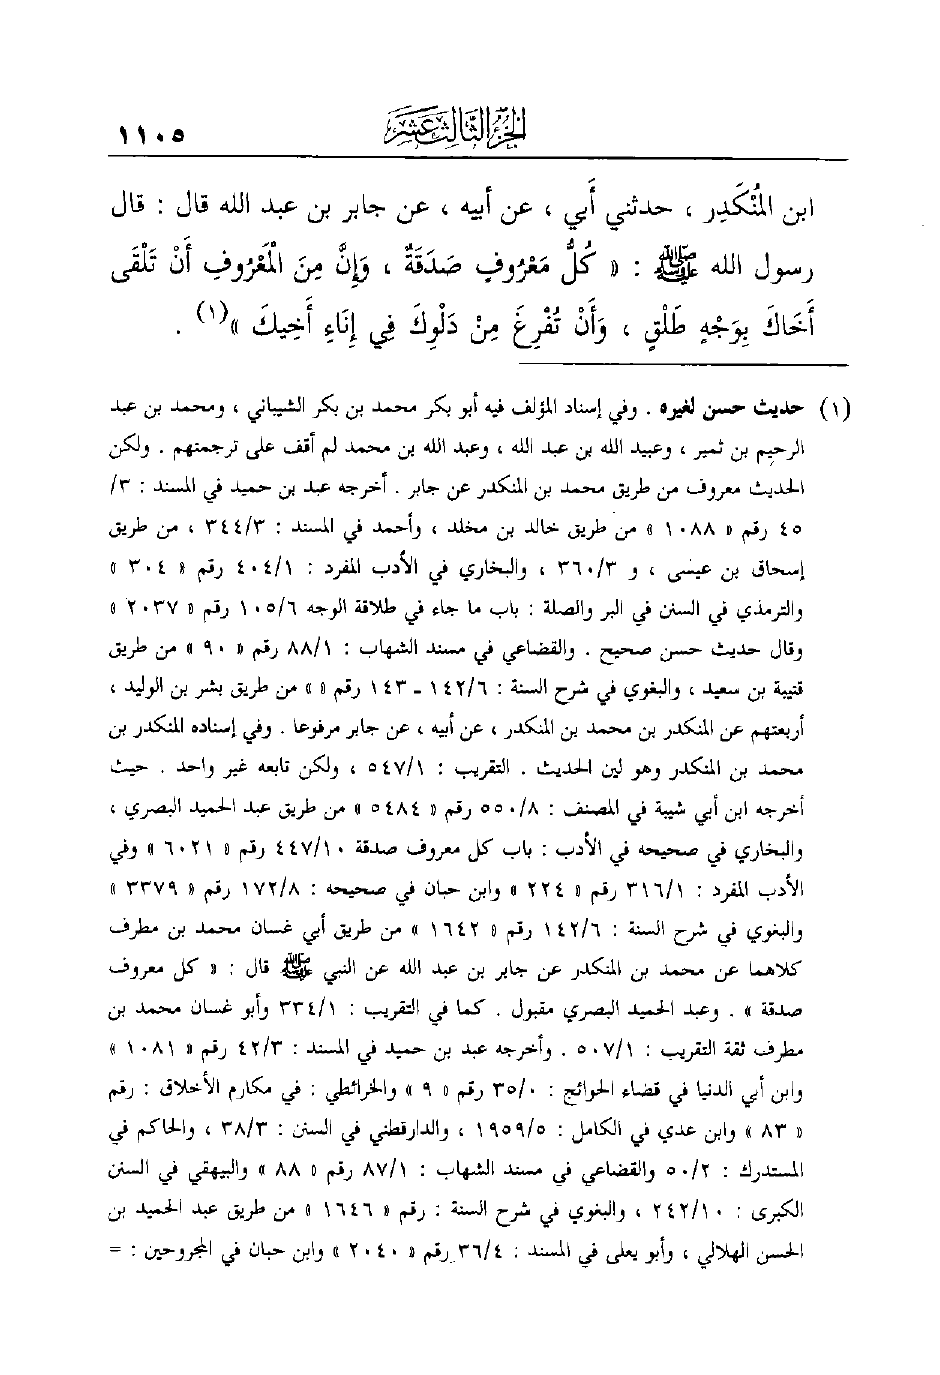 الجزء الثالث عشر ١١٠٥
ابن المُنْكَدِر ، حدثني أَبي ، عن أبيه ، عن جابر بن عبد الله قال : قال
رسول الله ﷺ : « كُلُّ مَعْرُوفٍ صَدَقَةٌ ، وَإِنَّ مِنَ الْمَعْرُوفِ أَنْ تَلْقَى
أَخَاكَ بِوَجْهٍ طَلْقٍ ، وَأَنْ تُفْرِغَ مِنْ دَلْوِكَ فِي إِنَاءِ أَخِيكَ »(١) .
(١) حديث حسن لغيره . وفي إسناد المؤلف فيه أبو بكر محمد بن بكر الشيباني ، ومحمد بن عبد
الرحيم بن ثمير ، وعبيد الله بن عبد الله ، وعبد الله بن محمد لم أقف على ترجمتهم . ولكن
الحديث معروف من طريق محمد بن المنكدر عن جابر . أخرجه عبد بن حميد في المسند : ٣/
٤٥ رقم « ١٠٨٨ » من طريق خالد بن مخلد ، وأحمد في المسند : ٣٤٤/٣ ، من طريق
إسحاق بن عيسى ، و ٣٦٠/٣ ، والبخاري في الأدب المفرد : ٤٠٤/١ رقم « ٣٠٤ »
والترمذي في السنن في البر والصلة : باب ما جاء في طلاقة الوجه ١٠٥/٦ رقم « ٢٠٣٧ »
وقال حديث حسن صحيح . والقضاعي في مسند الشهاب : ٨٨/١ رقم « ٩٠ » من طريق
قتيبة بن سعيد ، والبغوي في شرح السنة : ١٤٢/٦ ـ ١٤٣ رقم « » من طريق بشر بن الوليد ،
أربعتهم عن المنكدر بن محمد بن المنكدر ، عن أبيه ، عن جابر مرفوعا . وفي إسناده المنكدر بن
محمد بن المنكدر وهو لين الحديث . التقريب : ٥٤٧/١ ، ولكن تابعه غير واحد . حيث
أخرجه ابن أبي شيبة في المصنف : ٥٥٠/٨ رقم « ٥٤٨٤ » من طريق عبد الحميد البصري ،
والبخاري في صحيحه في الأدب : باب كل معروف صدقة ٤٤٧/١٠ رقم « ٦٠٢١ » وفي
الأدب المفرد : ٣١٦/١ رقم « ٢٢٤ » وابن حبان في صحيحه : ١٧٢/٨ رقم « ٣٣٧٩ »
والبغوي في شرح السنة : ١٤٢/٦ رقم « ١٦٤٢ » من طريق أبي غسان محمد بن مطرف
كلاهما عن محمد بن المنكدر عن جابر بن عبد الله عن النبي ﷺ قال : « كل معروف
صدقة » . وعبد الحميد البصري مقبول . كما في التقريب : ٣٣٤/١ وأبو غسان محمد بن
مطرف ثقة التقريب : ٥٠٧/١ . وأخرجه عبد بن حميد في المسند : ٤٢/٣ رقم « ١٠٨١ »
وابن أبي الدنيا في قضاء الحوائج : ٣٥/٠ رقم « ٩ » والخرائطي : في مكارم الأخلاق : رقم
« ٨٣ » وابن عدي في الكامل : ١٩٥٩/٥ ، والدارقطني في السنن : ٣٨/٣ ، والحاكم في
المستدرك : ٥٠/٢ والقضاعي في مسند الشهاب : ٨٧/١ رقم « ٨٨ » والبيهقي في السنن
الكبرى : ٢٤٢/١٠ ، والبغوي في شرح السنة : رقم « ١٦٤٦ » من طريق عبد الحميد بن
الحسن الهلالي ، وأبو يعلى في المسند : ٣٦/٤ رقم « ٢٠٤٠ » وابن حبان في المجروحين : =